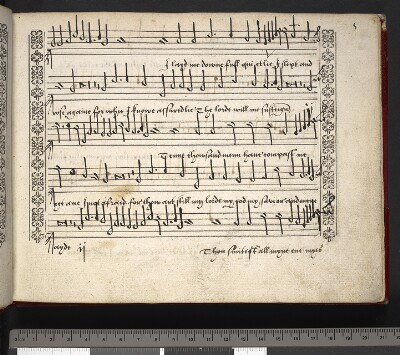 I layd me downe full quietlie I slept and
rose againe for why I knowe assuredlie The lord will me susteyne
Tenne thousand menn have compast me
yet am I not afraid for thou art still my lorde my god my savior and
ayde ij Thou smitest all myne enemyes